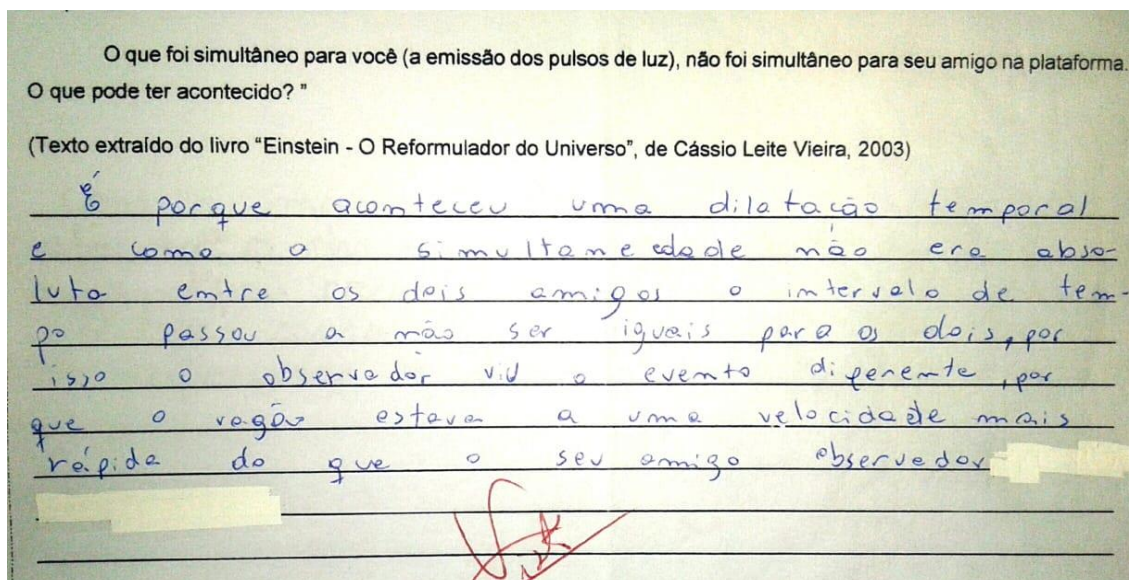 O que foi simultâneo para você (a emissão dos pulsos de luz), não foi simultâneo para seu amigo na plataforma.
O que pode ter acontecido? "
(Texto extraído do livro “Einstein - O Reformulador do Universo”, de Cássio Leite Vieira, 2003)
É porque aconteceu uma dilatação temporal
e como a simultaneedade não era abso-
luta entre os dois amigos o intervalo de tem-
po passou a não ser iguais para os dois, por
isso o observador viu o evento diferente, por
que o vagão estava a uma velocidade mais
rápida do que o seu amigo observador